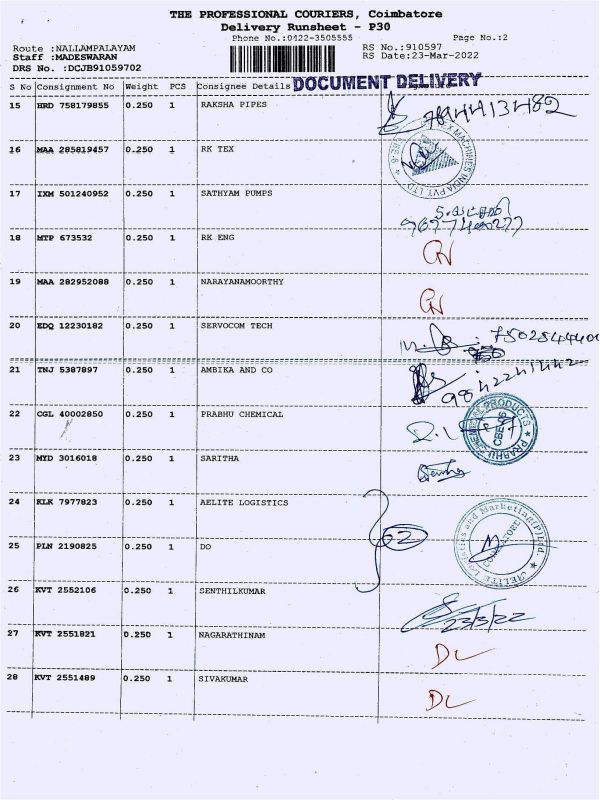 THE PROFESSIONAL COURIERS, Coimbatore
Delivery Runsheet - P30
Phone No.:0422-3505555 Page No.:2
Route :NALLAMPALAYAM RS No.:910597
Staff :MADESWARAN RS Date:23-Mar-2022
DRS No. :DCJB91059702
DOCUMENT DELIVERY
S No Consignment No Weight PCS Consignee Details
15 HRD 758179855 0.250 1 RAKSHA PIPES
16 MAA 285819457 0.250 1 RK TEX
MACHINES INDIA PVT. LTD
17 IXM 501240952 0.250 1 SATHYAM PUMPS
18 MTP 673532 0.250 1 RK ENG
19 MAA 282952088 0.250 1 NARAYANAMOORTHY
20 EDQ 12230182 0.250 1 SERVOCOM TECH
21 TNJ 5387897 0.250 1 AMBIKA AND CO
22 CGL 40002850 0.250 1 PRABHU CHEMICAL
PRABHU CHEMICAL PRODUCTS
23 MYD 3016018 0.250 1 SARITHA
24 KLK 7977823 0.250 1 AELITE LOGISTICS
02
AELITE Logistics and Marketing(P)Ltd.
COIMBATORE
25 PLN 2190825 0.250 1 DO
26 KVT 2552106 0.250 1 SENTHILKUMAR
23/3/22
27 KVT 2551821 0.250 1 NAGARATHINAM
DL
28 KVT 2551489 0.250 1 SIVAKUMAR
DL